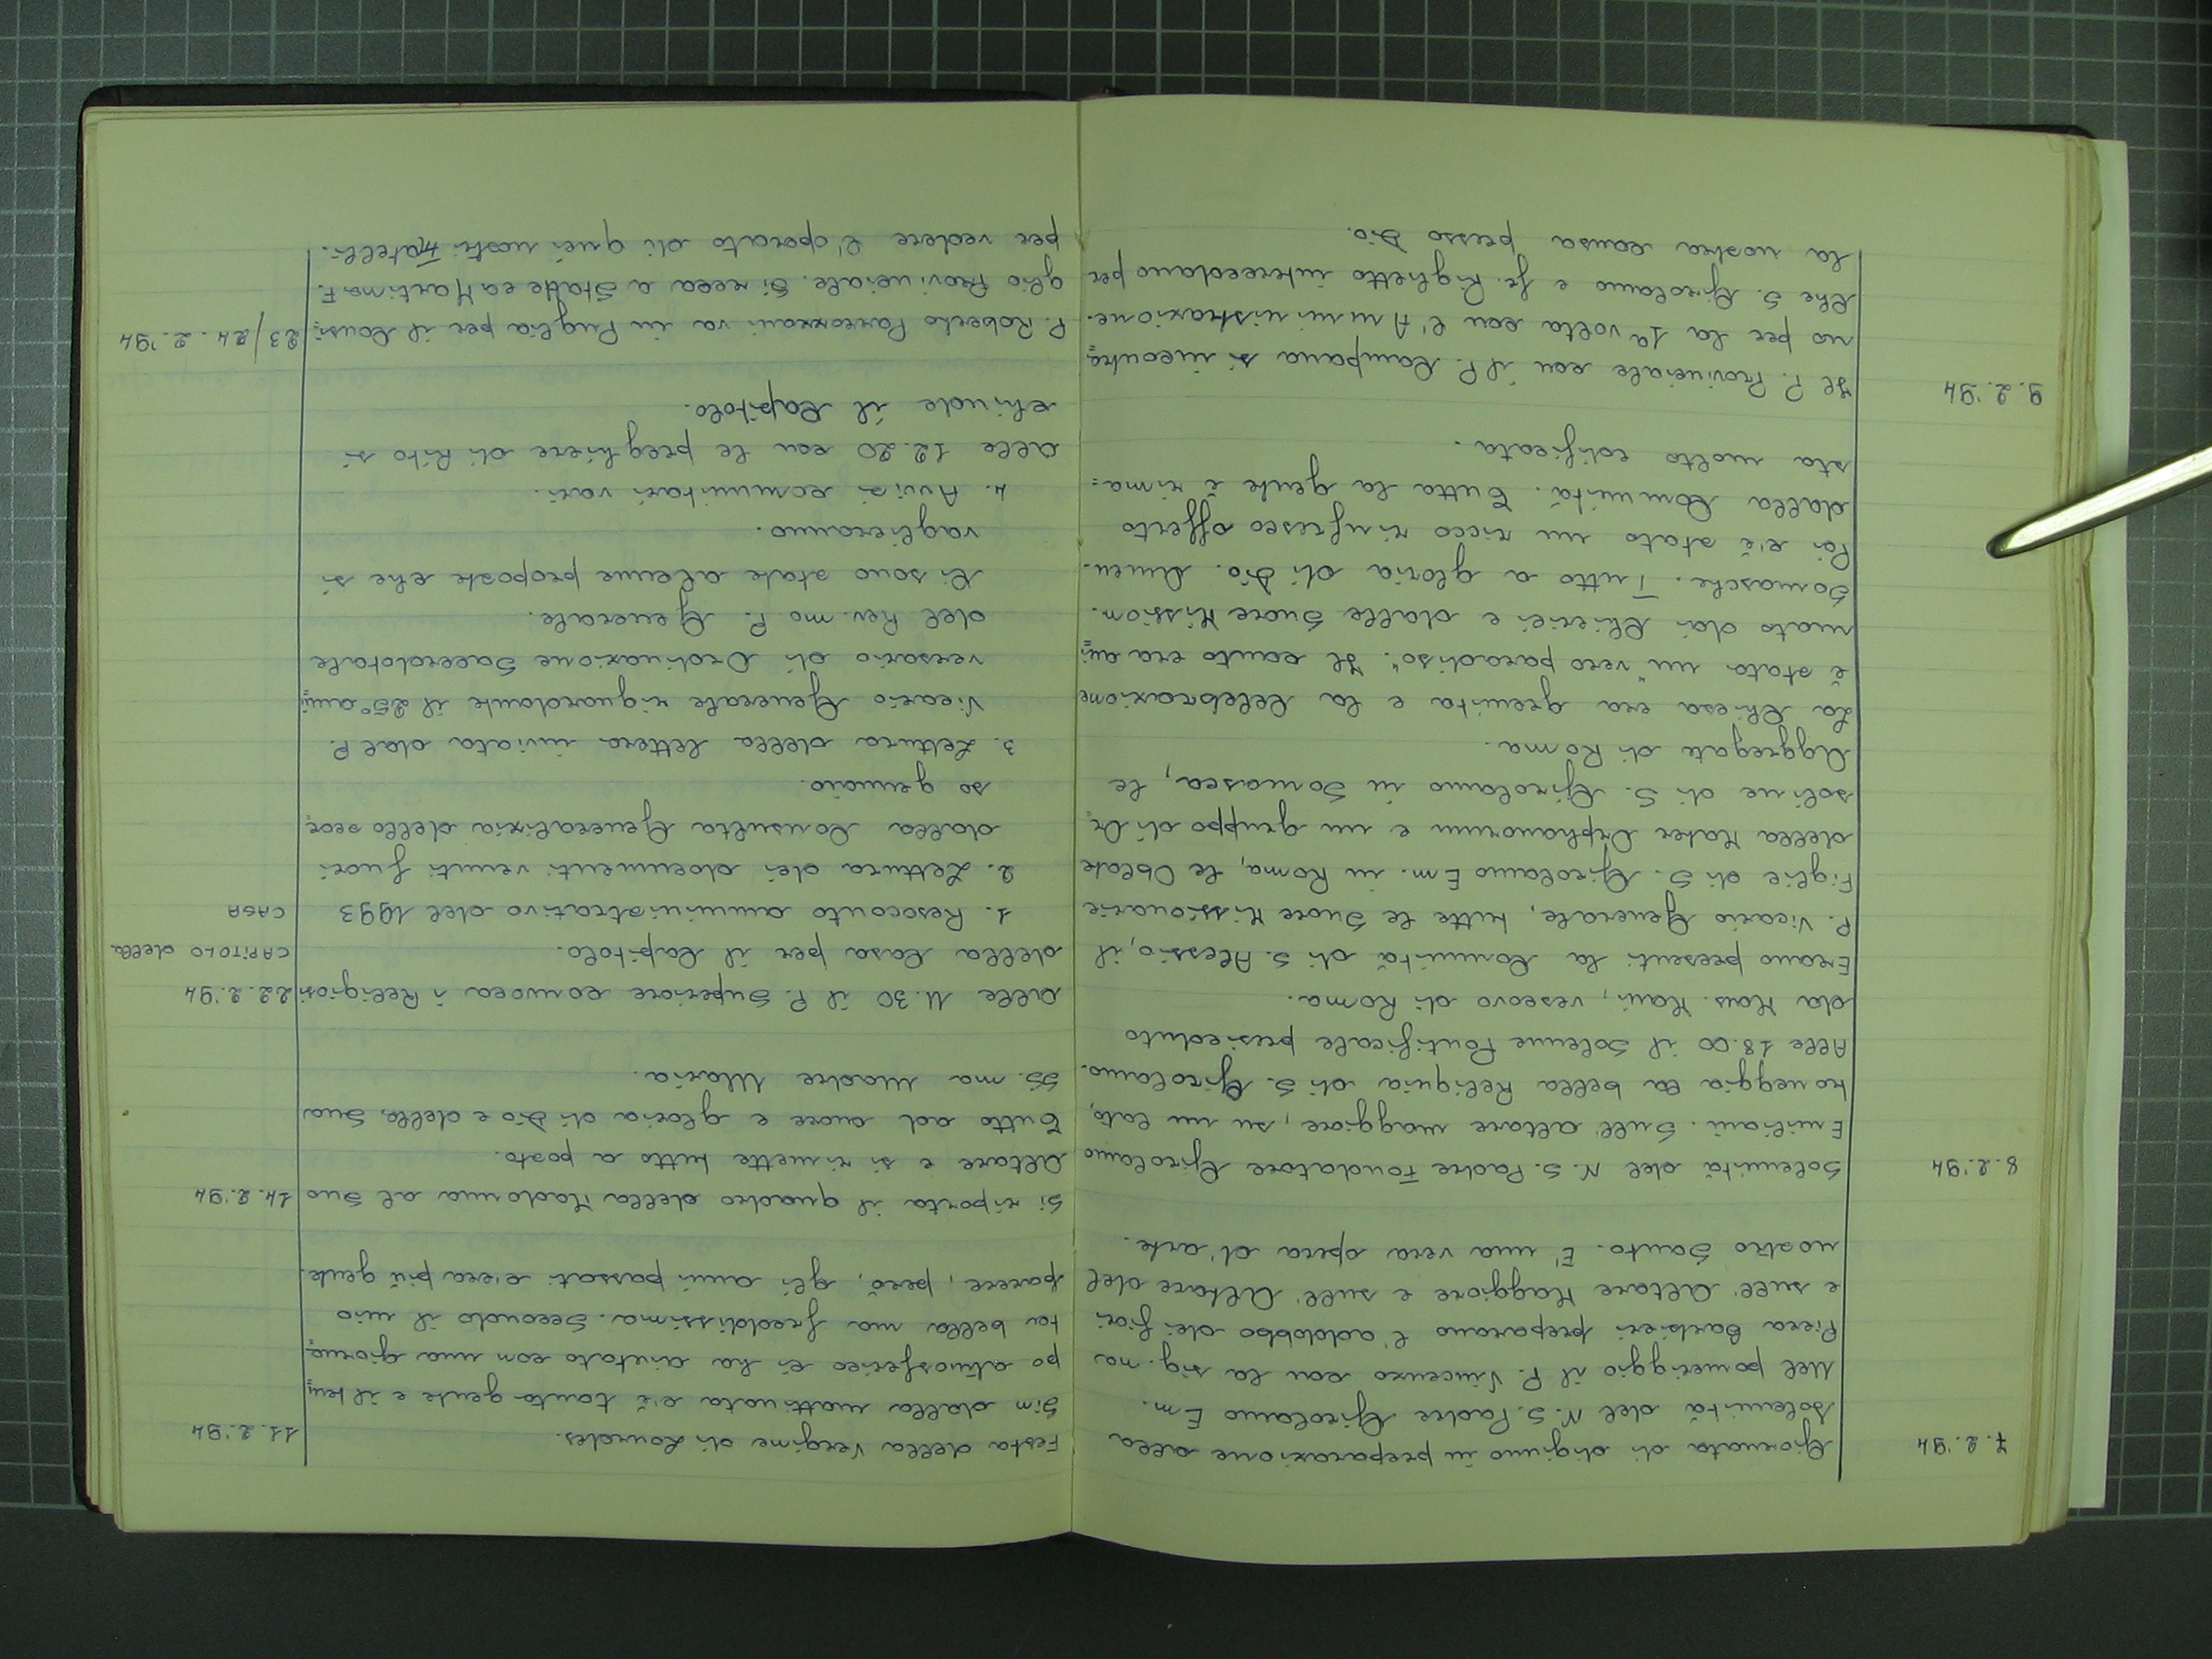 7.2.'94
Giornata di digiuno in preparazione alla
solennità del N.S. Padre Girolamo Em.
Nel pomeriggio il P. Vincenzo con la sig.na
Piera Barbieri preparano l'addobbo dei fiori
e sull'Altare Maggiore e sull'Altare del
nostro Santo. E' una vera opera d'arte.
8.2.'94
Solennità del N.S. Padre Fondatore Girolamo
Emiliani. Sull'altare maggiore, su un lato,
troneggia la bella Reliquia di S. Girolamo.
Alle 18.00 il Solenne Pontificale presieduto
da Mons. Mani, vescovo di Roma.
Erano presenti la Comunità di S. Alessio, il
P. Vicario Generale, tutte le Suore Missionarie
Figlie di S. Girolamo Em. in Roma, le Oblate
della Mater Orphanorum e un gruppo di Or
soline di S. Girolamo in Somasca, le
Aggregate di Roma.
La Chiesa era gremita e la Celebrazione
è stata un "vero paradiso". Il canto era ani
mato dai Chierici e dalle Suore Mission.
Somasche. Tutto a gloria di Dio. Amen.
Poi c'è stato un ricco rinfresco offerto
dalla Comunità. Tutta la gente è rima=
sta molto edificata.
9.2.'94
Il P. Provinciale con il P. Campana si incontra
no per la 1ª volta con l'Amministrazione.
Che S. Girolamo e fr. Righetto intercedano per
la nostra causa presso Dio.
11.2.'94
Festa della Vergine di Lourdes.
Sin dalla mattinata c'è tanta gente e il tem
po atmosferico ci ha aiutato con una giorna
ta bella ma freddissima. Secondo il mio
parere, però, gli anni passati c'era più gente.
14.2.'94
Si riporta il quadro della Madonna al Suo
Altare e si rimette tutto a posto.
Tutto ad onore e gloria di Dio e della Sua
SS.ma Madre Maria.
22.2.'94
CAPITOLO della
CASA
Alle 11.30 il P. Superiore convoca i Religiosi
della Casa per il Capitolo.
1. Resoconto amministrativo del 1993
2. Lettura dei documenti venuti fuori
dalla Consulta Generalizia dello scor
so gennaio.
3. Lettura della lettera inviata dal P.
Vicario Generale riguardante il 25° anni
versario di Ordinazione Sacerdotale
del Rev.mo P. Generale.
Ci sono state alcune proposte che si
vaglieranno.
4. Avvisi comunitari vari.
Alle 12.20 con le preghiere di Rito si
chiude il Capitolo.
23/24.2.'94
P. Roberto Parrozzani va in Puglia per il Consi
glio Provinciale. Si reca a Statte e a Martina F.
per vedere l'operato di quei nostri Fratelli.